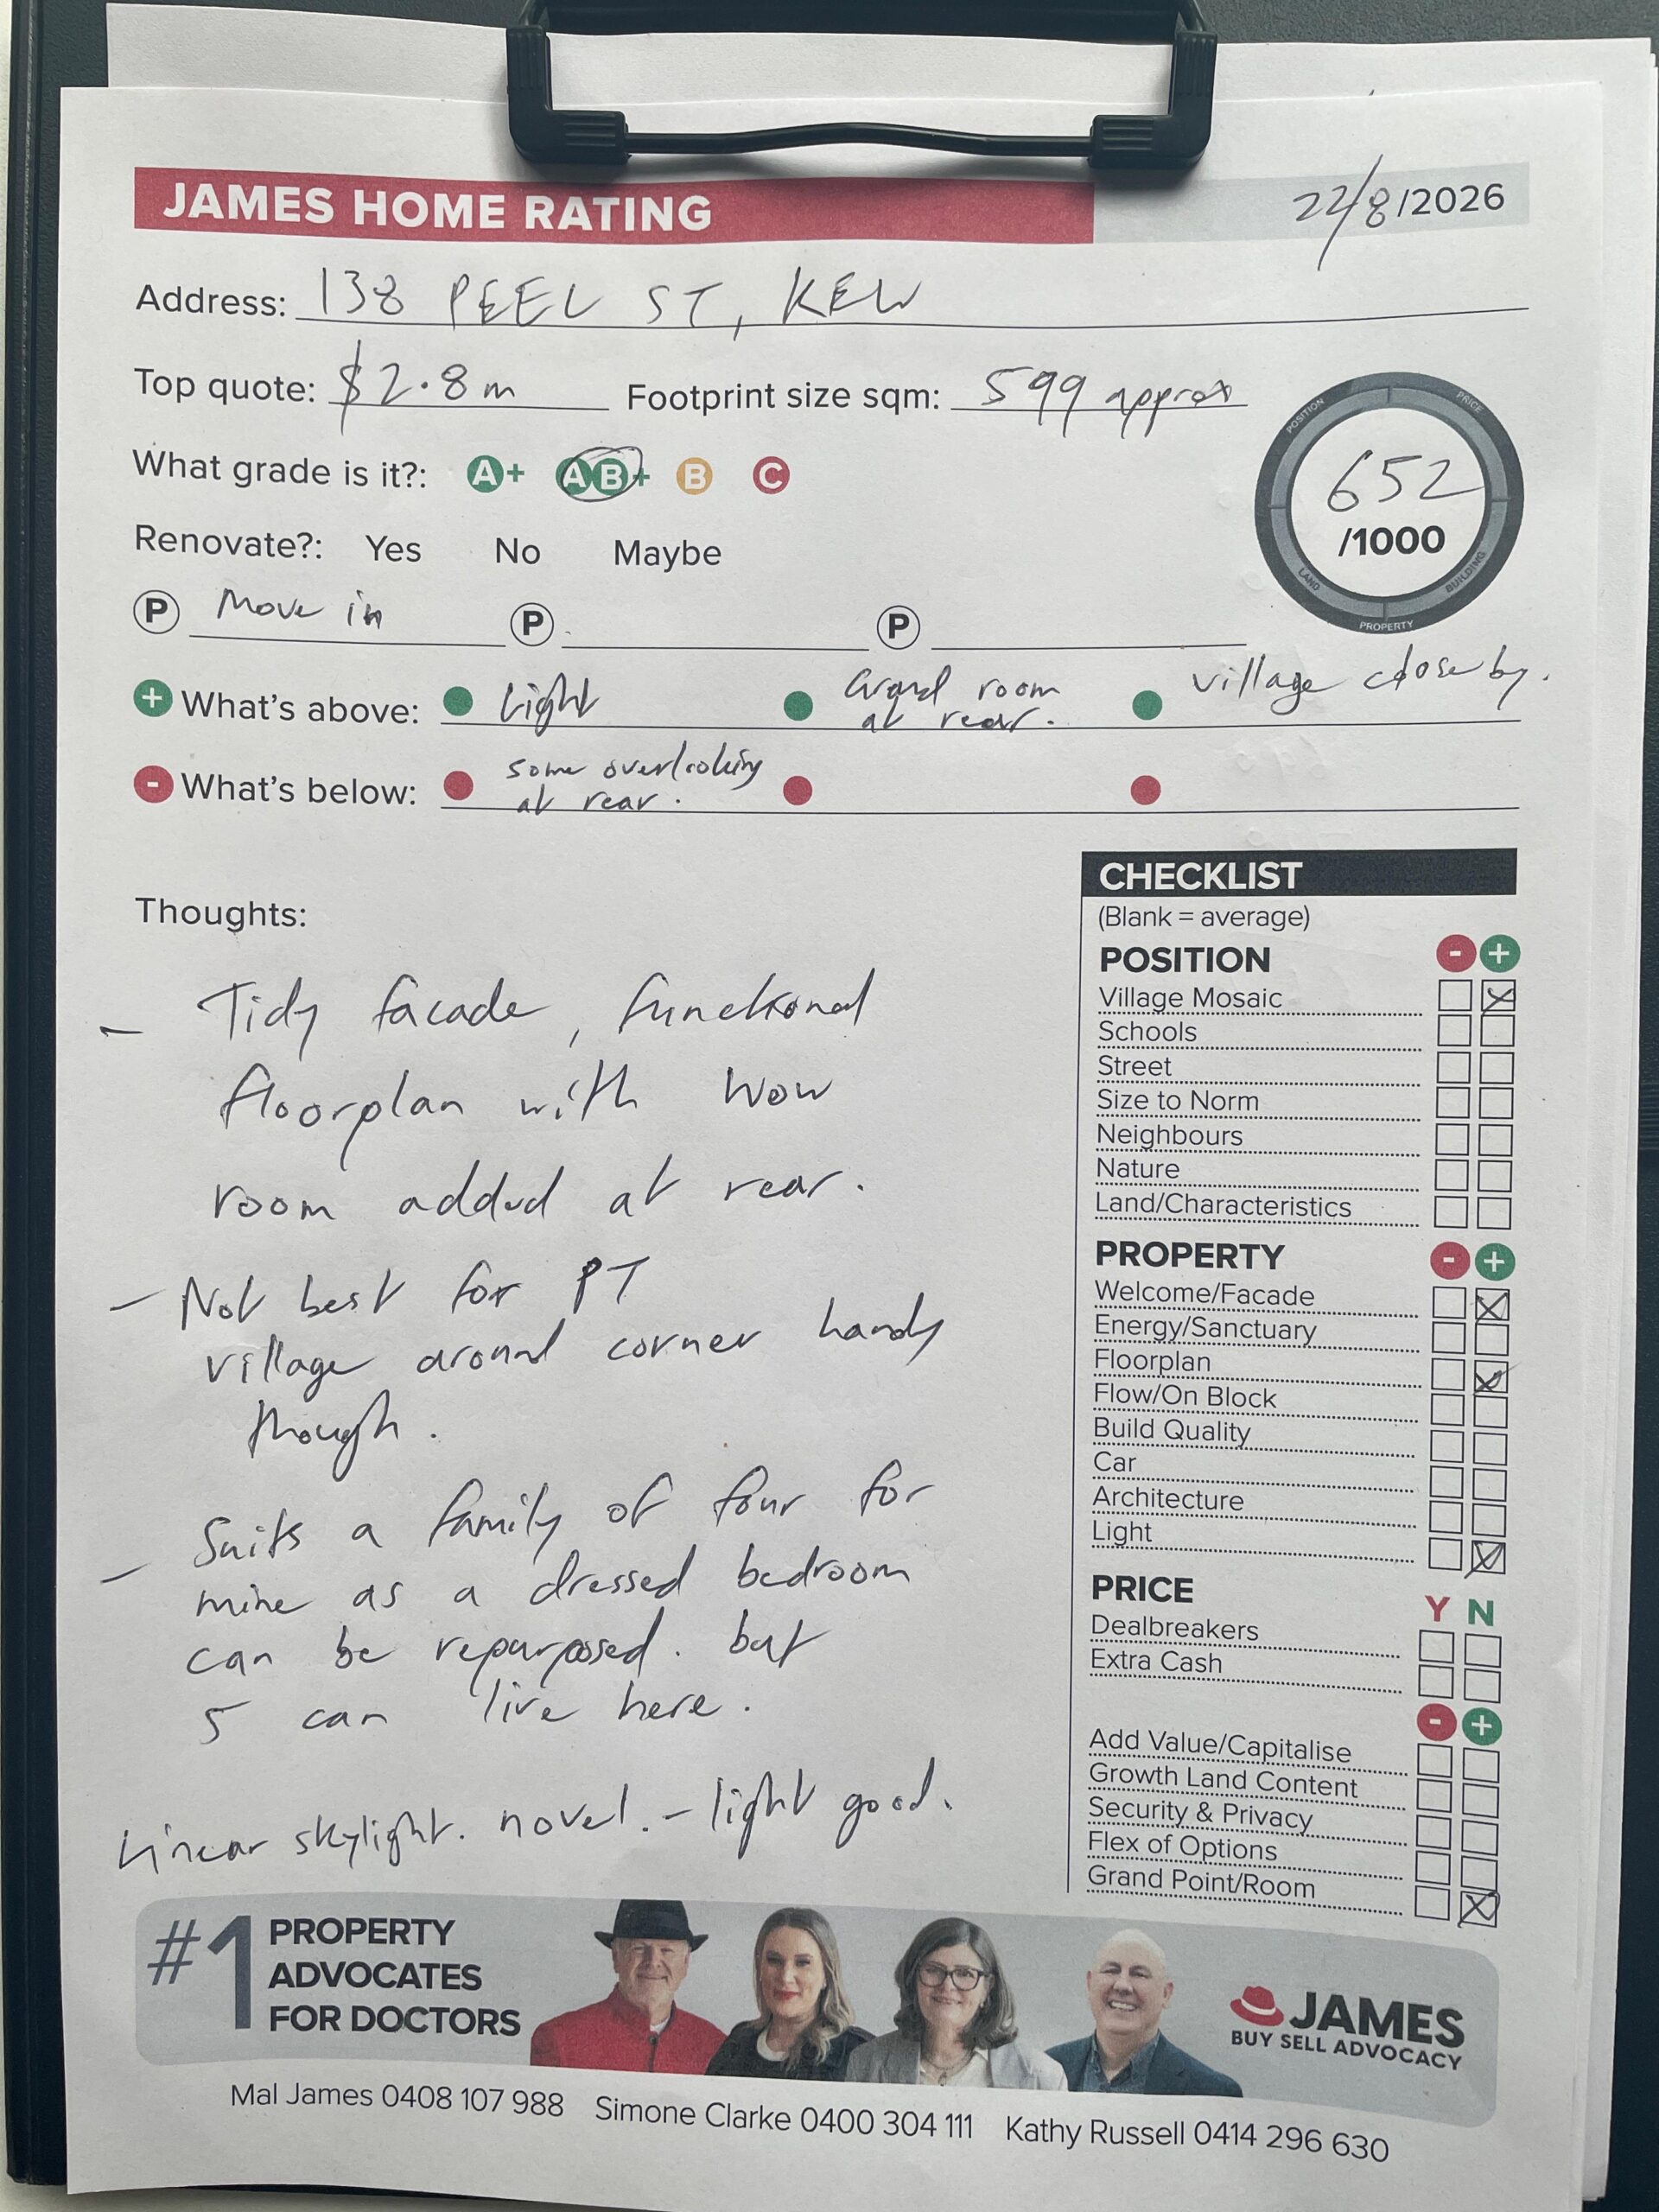 JAMES HOME RATING
22/8/2026
Address: 138 PEEL ST, KEW
Top quote: $2.8m Footprint size sqm: 599 approx
What grade is it?: A+ AB+ B C
POSITION PRICE LAND BUILDING PROPERTY
652
/1000
Renovate?: Yes No Maybe
P Move in P P
+ What's above: Light Grand room at rear. village close by.
- What's below: some overlooking at rear.
Thoughts:
- Tidy facade, functional
floorplan with wow
room added at rear.
- Not best for PT
village around corner handy
though.
- Suits a family of four for
mine as a dressed bedroom
can be repurposed. but
5 can live here.
Linear skylight. novel. - light good.
CHECKLIST
(Blank = average)
POSITION - +
Village Mosaic
Schools
Street
Size to Norm
Neighbours
Nature
Land/Characteristics
PROPERTY - +
Welcome/Facade
Energy/Sanctuary
Floorplan
Flow/On Block
Build Quality
Car
Architecture
Light
PRICE Y N
Dealbreakers
Extra Cash
- +
Add Value/Capitalise
Growth Land Content
Security & Privacy
Flex of Options
Grand Point/Room
#1 PROPERTY
ADVOCATES
FOR DOCTORS
JAMES
BUY SELL ADVOCACY
Mal James 0408 107 988 Simone Clarke 0400 304 111 Kathy Russell 0414 296 630